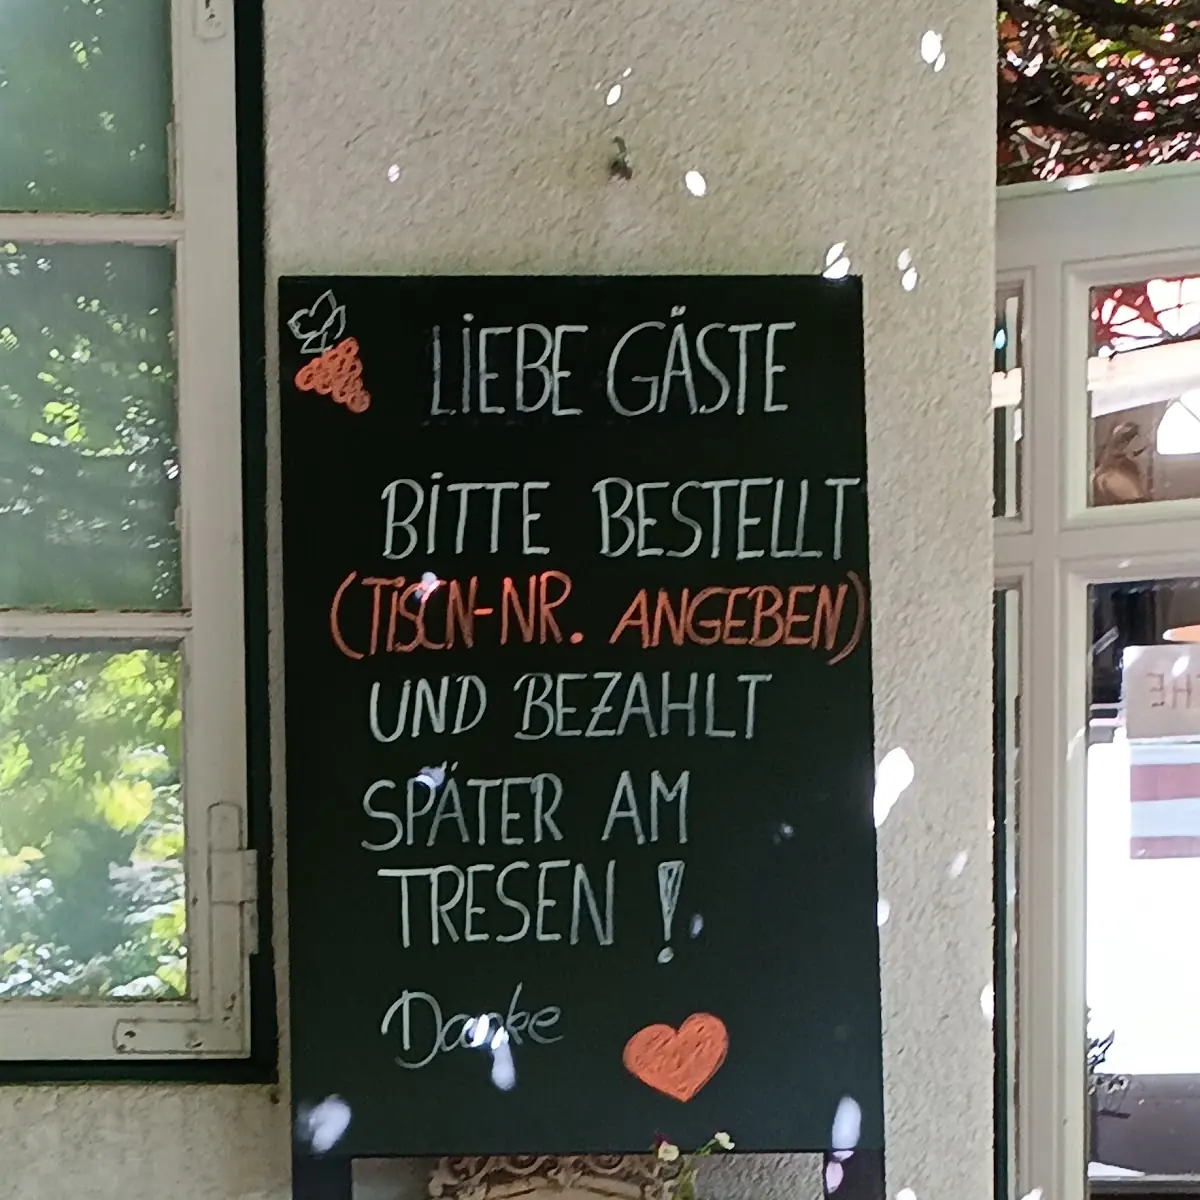 LIEBE GÄSTE
BITTE BESTELLT
(TISCH-NR. ANGEBEN)
UND BEZAHLT
SPÄTER AM
TRESEN !
Danke